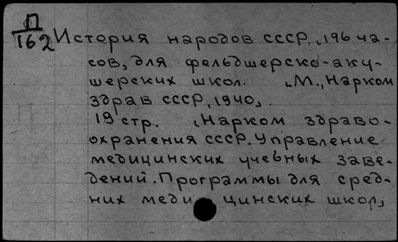 П
162
История народов СССР. „196 ча-
сов, для фельдшерско-аку-
шерских школ. „М., Нарком
здрав СССР, 1940„.
19 стр. „Нарком здраво-
охранения СССР. Управление
медицинских учебных заве-
дений. Программы для сред-
них медицинских школ„